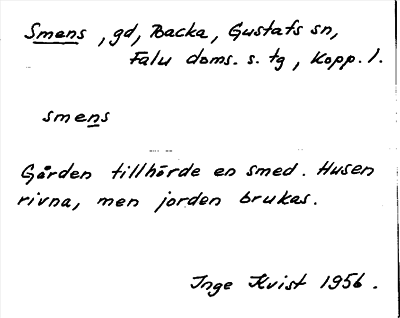 Smens, gd, Backa, Gustafs sn,
Falu doms. s. tg, Kopp. l.
smens
Gården tillhörde en smed. Husen
rivna, men jorden brukas.
Inge Kvist 1956.